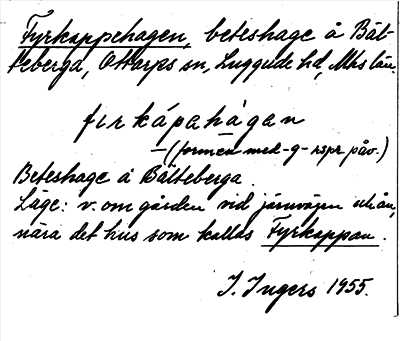 Fyrkappehagen, beteshage å Bält-
teberga, Ottarps sn, Luggude hd, Mhs län.
firkápahàgan
— (formen med -g- rspr påv.)
Beteshage å Bälteberga.
Läge: v. om gården vid järnvägen
nära det hus som kallas Fyrkappan.
I. Ingers 1955.